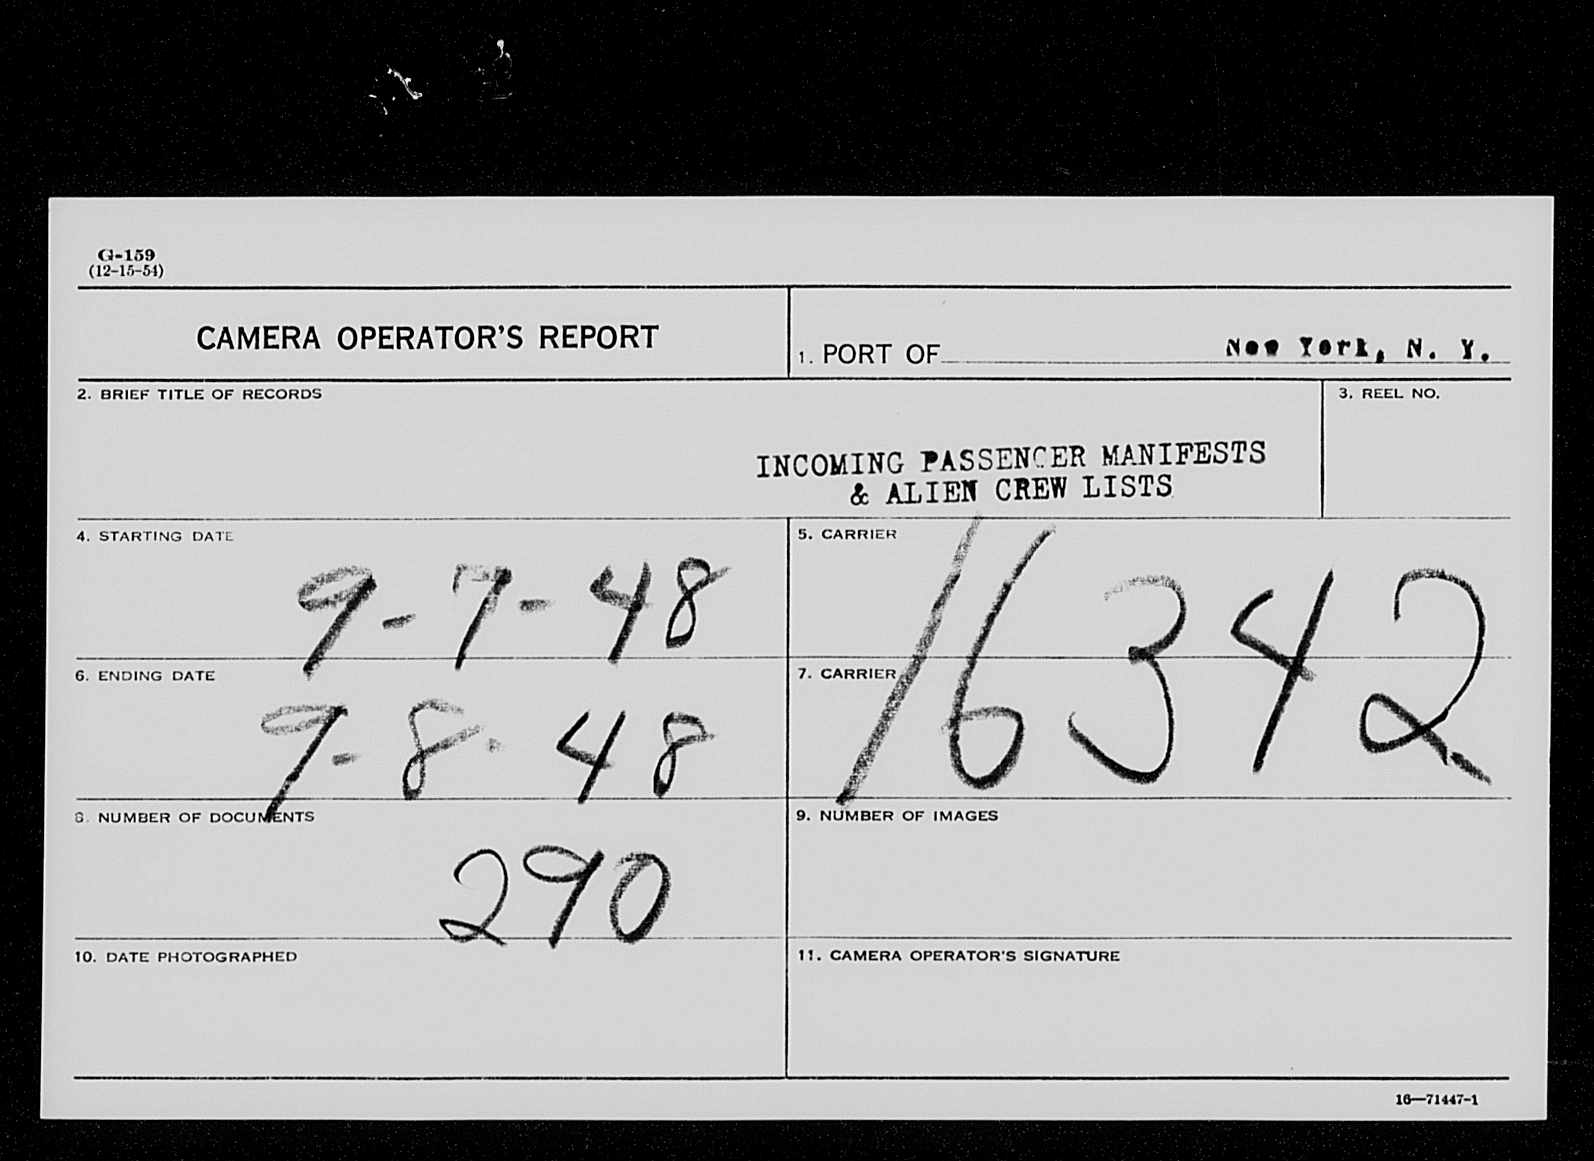 G-159
(12-15-54)
CAMERA OPERATOR'S REPORT
1. PORT OF New York, N. Y.
2. BRIEF TITLE OF RECORDS
3. REEL NO.
INCOMING PASSENGER MANIFESTS
& ALIEN CREW LISTS
4. STARTING DATE
9-7-48
5. CARRIER
16342
6. ENDING DATE
9-8-48
7. CARRIER
8. NUMBER OF DOCUMENTS
290
9. NUMBER OF IMAGES
10. DATE PHOTOGRAPHED
11. CAMERA OPERATOR'S SIGNATURE
16—71447-1